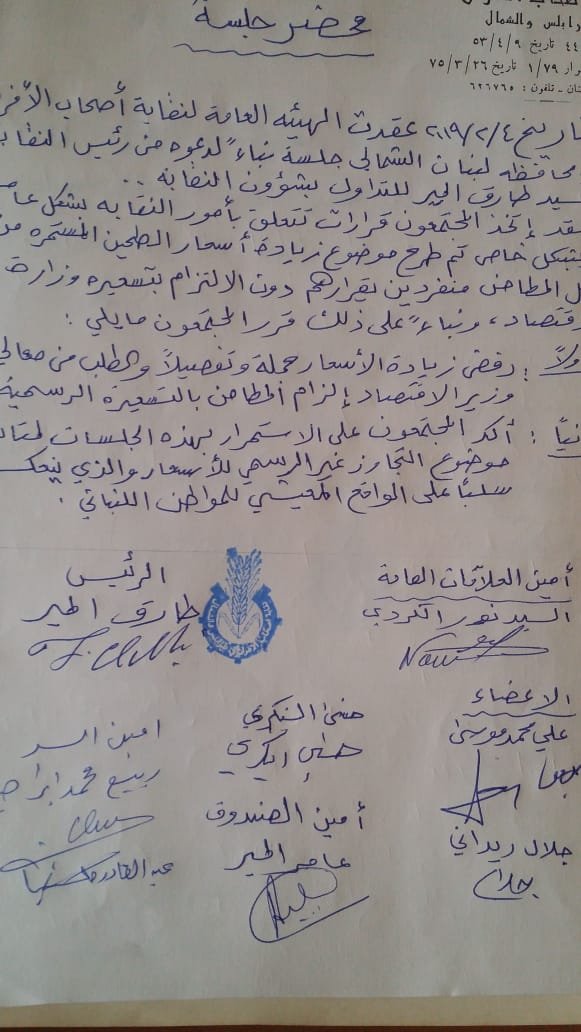 رابلس والشمال
٤٤ تاريخ ٥٣/٤/٩
رار ١/٧٩ تاريخ ٧٥/٣/٢٦
تان ـ تلفون : ٦٢٦٧٦٥
محضر جلسة
تاريخ ٢٠١٩/٢/٤ عقدت الهيئه العامة لنقابة أصحاب الأفر
محافظه لبنان الشمالي جلسة بناءً لدعوه من رئيس النقاب
سيد طارق المير للتداول بشؤون النقابه ..
قد إتخذ المجتمعون قرارات تتعلق بأمور النقابه بشكل عا
بشكل خاص تم طرح موضوع زيادة أسعار الطحين المستمره من
ل المطاحن منفردين بقرارهم دون الالتزام بتسعيره وزارة
قتصاد ، وبناءً على ذلك قرر المجتمعون مايلي :
ولاً : رفض زيادة الأسعار جملة وتفصيلاً والطلب من معالي
وزير الاقتصاد إلزام المطاحن بالتسعيرة الرسمية
نياً : أكد المجتمعون على الاستمرار بهذه الجلسات لمتا
موضوع التجاوز غير الرسمي للأسعار والذي ينعك
سلباً على الواقع المعيشي للمواطن اللبناني .
أمين العلاقات العامة
السيد نور الكردي
الرئيس
طارق المير
الاعضاء
علي محمد موسى
جلال ريداني
جلال
أمين الصندوق
عامر المير
امين السر
ربيع محمد ابراه